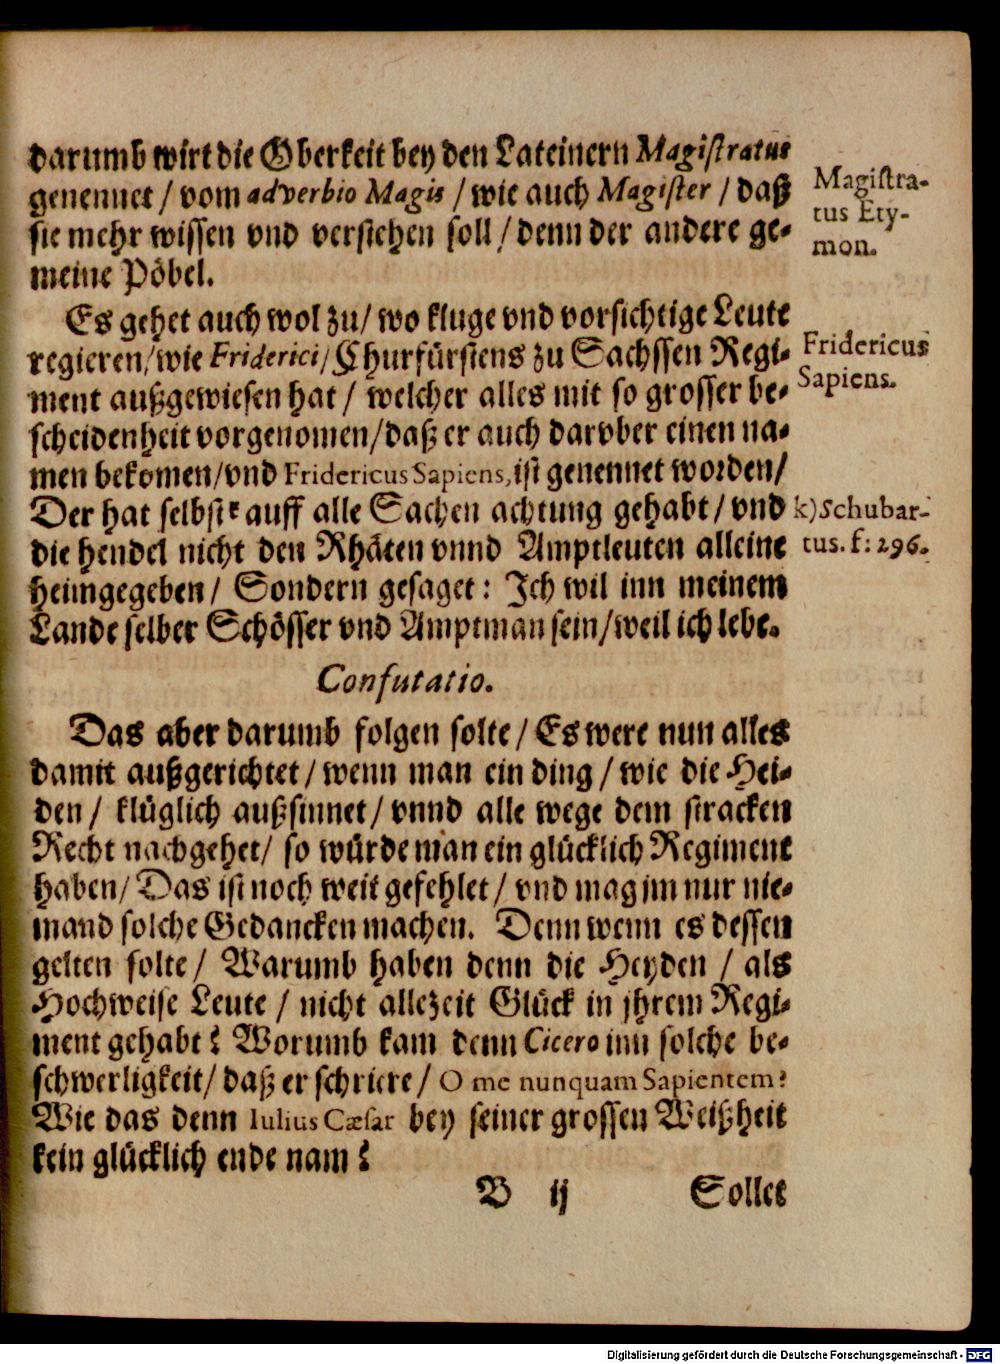 darumb wirt die Oberkeit bey den Lateinern Magistratus
genennet / vom adverbio Magis / wie auch Magister / daß
sie mehr wissen vnd verstehen soll / denn der andere ge-
meine Pöbel.
Magistra-
tus Ety-
mon.
Es gehet auch wol zu / wo kluge vnd vorsichtige Leute
regieren / wie Friderici / Churfürstens zu Sachssen Regi-
ment außgewiesen hat / welcher alles mit so grosser be-
scheidenheit vorgenomen / daß er auch darvber einen na-
men bekomen / vnd Fridericus Sapiens, ist genennet worden /
Der hat selbst k auff alle Sachen achtung gehabt / vnd
die hendel nicht den Rhäten vnnd Amptleuten alleine
heimgegeben / Sondern gesaget: Ich wil inn meinem
Lande selber Schösser vnd Amptman sein / weil ich lebe.
Fridericus
Sapiens.
k) Schubar-
tus. f: 296.
Confutatio.
Das aber darumb folgen solte / Es were nun alles
damit außgerichtet / wenn man ein ding / wie die Hei-
den / klüglich außsinnet / vnnd alle wege dem stracken
Recht nachgehet / so würde man ein glücklich Regiment
haben / Das ist noch weit gefehlet / vnd mag jm nur nie-
mand solche Gedancken machen. Denn wenn es dessen
gelten solte / Warumb haben denn die Heyden / als
Hochweise Leute / nicht allezeit Glück in jhrem Regi-
ment gehabt? Worumb kam denn Cicero inn solche be-
schwerligkeit / daß er schriere / O me nunquam Sapientem?
Wie das denn Iulius Cæsar bey seiner grossen Weißheit
kein glücklich ende nam?
B ij Sollet
Digitalisierung gefördert durch die Deutsche Forschungsgemeinschaft - DFG